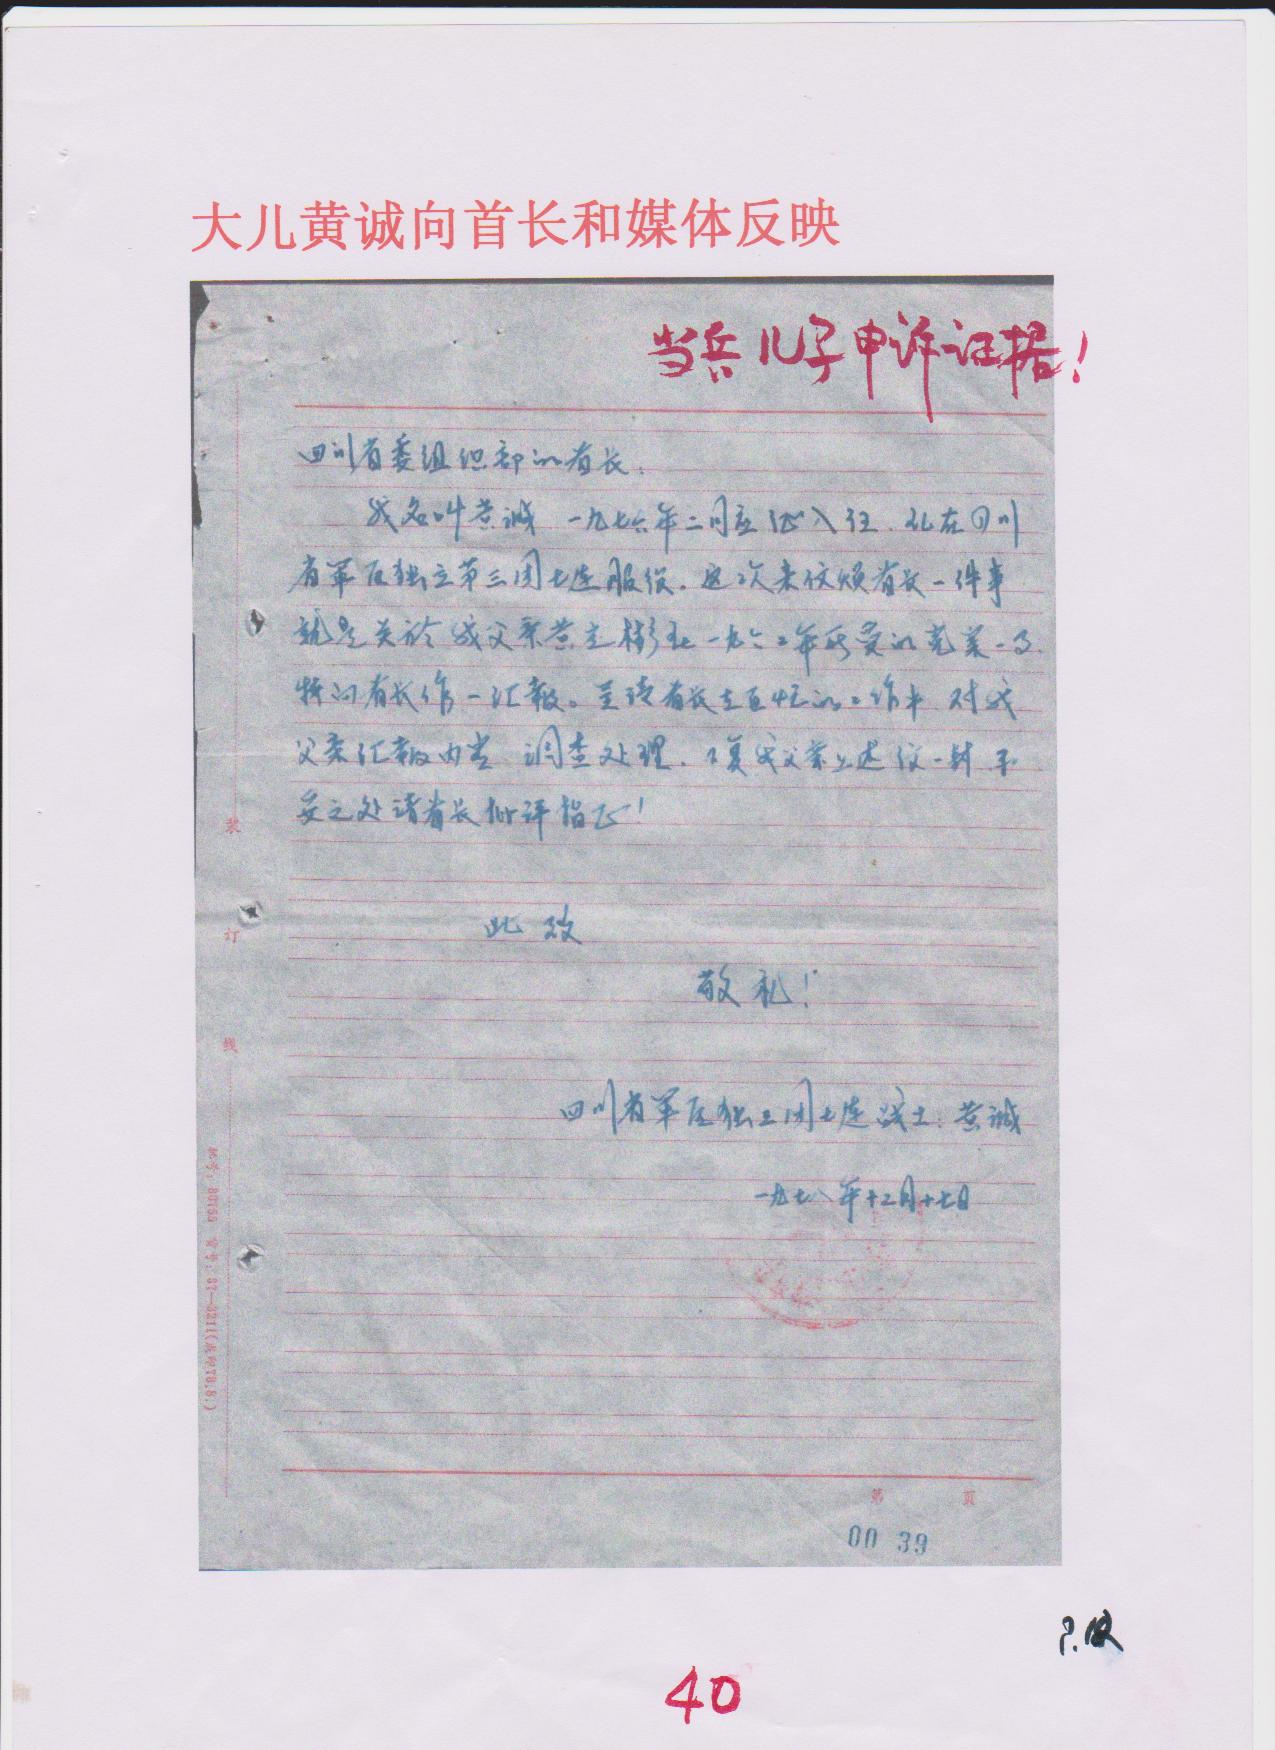 大儿黄诚向首长和媒体反映
当兵儿子申诉证据！
四川省委组织部的首长：
我名叫黄诚 一九七六年二月应征入伍，现在四川
省军区独立第三团七连服役。这次来信烦首长一件事
就是关於我父亲黄志彬在一九六二年所受的冤案一事
特向首长作一汇报。呈请首长在百忙的工作中 对我
父亲汇报内容 调查处理，复我父亲上述信一封 不
妥之处请首长批评指正！
此致
敬礼！
四川省军区独三团七连战士：黄诚
一九七八年十二月十七日
装
订
线
第 页
00 39
40